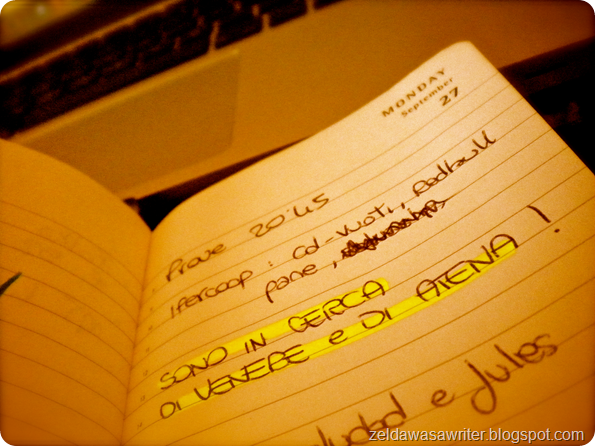 MONDAY
September
27
Prove 20:45
Ipercoop: cd-vuoti, redbull
pane,
SONO IN CERCA
DI VENERE e DI ATENA!
e Jules
zeldawasawriter.blogspot.com